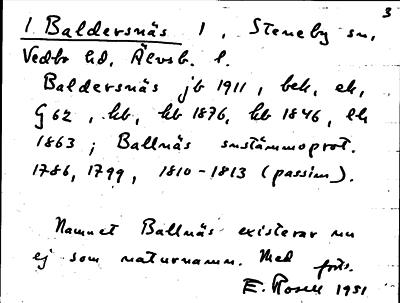 3
1 Baldersnäs 1, Steneby sn,
Vedbo hd, Älvsb. l.
Baldersnäs jb 1911, bek, ek,
G 62, kb, hb 1876, hb 1846, lh
1863; Ballnäs snstämmoprot.
1786, 1799, 1810-1813 (passim).
Namnet Ballnäs existerar nu
ej som naturnamn. Med forts.
E. Rosell 1951